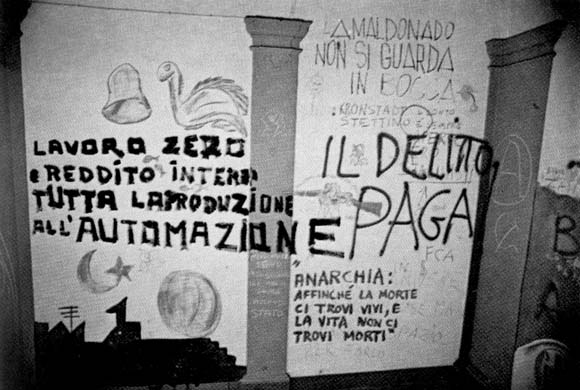 LAVORO ZERO
E REDDITO INTERO
TUTTA LA PRODUZIONE
ALL'AUTOMAZIONE
LA MALDONADO
NON SI GUARDA
IN BOCCA
KRONSTADT
STETTINO
IL DELITTO
PAGA
È
ANARCHIA:
AFFINCHÉ LA MORTE
CI TROVI VIVI, E
LA VITA NON CI
TROVI MORTI"
FCA
STATO
B
A